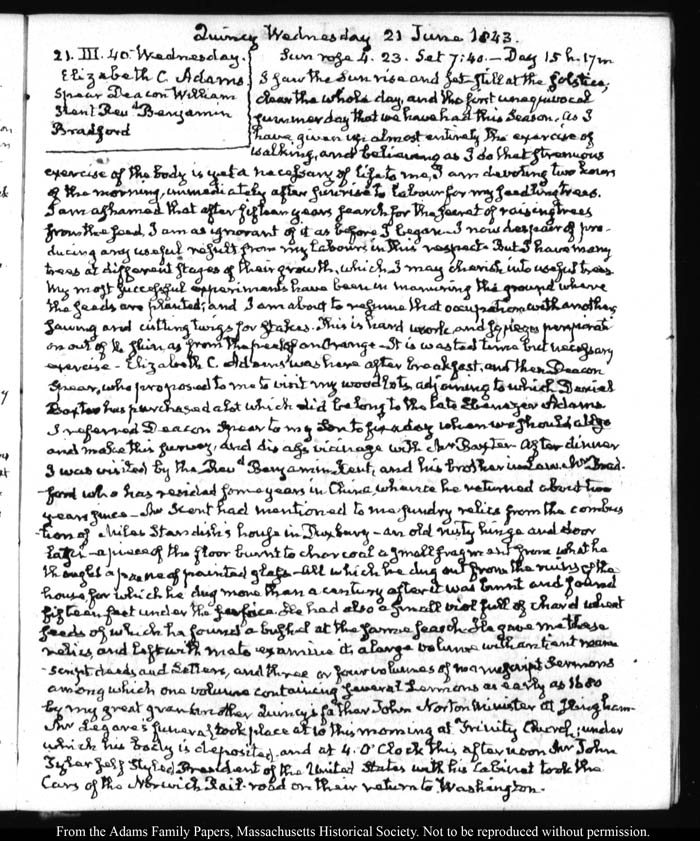 Quincy Wednesday 21 June 1843.
21. III. 40 Wednesday.
Elizabeth C. Adams
Spear Deacon William
Kent Revd Benjamin
Bradford
Sun rose 4. 23. Set 7:40.— Day 15 h. 17m
I saw the Sun rise and set still at the solstice,
clear the whole day, and the first unequivocal
summer day that we have had this Season. As I
have given up almost entirely the exercise of
walking, and believing as I do that strenuous
exercise of the body is yet a necessary of life to me, I am devoting two hours
of the morning, immediately after sunrise to labour for my seedling trees.
I am ashamed that after fifteen years search for the secret of raising trees
from the seed, I am as ignorant of it as before I began. I now despair of pro-
ducing any useful result from my labours in this respect. But I have many
trees at different stages of their growth, which I may cherish into useful trees
My most successful experiments have been in manuring the ground where
the seeds are planted; and I am about to resume that occupation, with another,
sawing and cutting twigs for stakes. This is hard work, and perspirati-
on out of the skin, as from the peel of an Orange— It is wasted time but necessary
exercise— Elizabeth C. Adams was here after breakfast, and then Deacon
Spear, who proposed to me to visit my wood lots, adjoining to which Daniel
Baxter has purchased a lot which did belong to the late Ebenezer Adams
I referred Deacon Spear to my Son to fix a day when we should all go
and make this survey, and vicinage with Mr Baxter. After dinner
I was visited by the Revd Benjamin Kent, and his brother in Law Mr Brad-
ford who has resided some years in China, whence he returned about two
years since— Mr Kent had mentioned to me sundry relics from the combus-
tion of Miles Standish's house in Duxbury— an old rusty hinge and door
latch— a piece of the floor burnt to charcoal a small fragment from what he
thought a pane of painted glass— All which he dug out from the ruins of the
house, for which he dug more than a century after it was burnt and found
fifteen feet under the surface. He had also a small viol full of chard wheat
seeds of which he found a bushel at the same search. He gave me these
relics, and left with me to examine it, a large volume with antient manu-
script deeds and Letters, and three or four volumes of manuscript Sermons
among which one volume containing several Sermons as early as 1680
by my great grandmother Quincy's father John Norton Minister at Hingham—
Mr Legare's funeral took place at 10 this morning at Trinity Church, under
which his body is deposited, and at 4. O'Clock this afternoon Mr John
Tyler self styled President of the United States with his Cabinet took the
Cars of the Norwich Rail-road on their return to Washington.
From the Adams Family Papers, Massachusetts Historical Society. Not to be reproduced without permission.